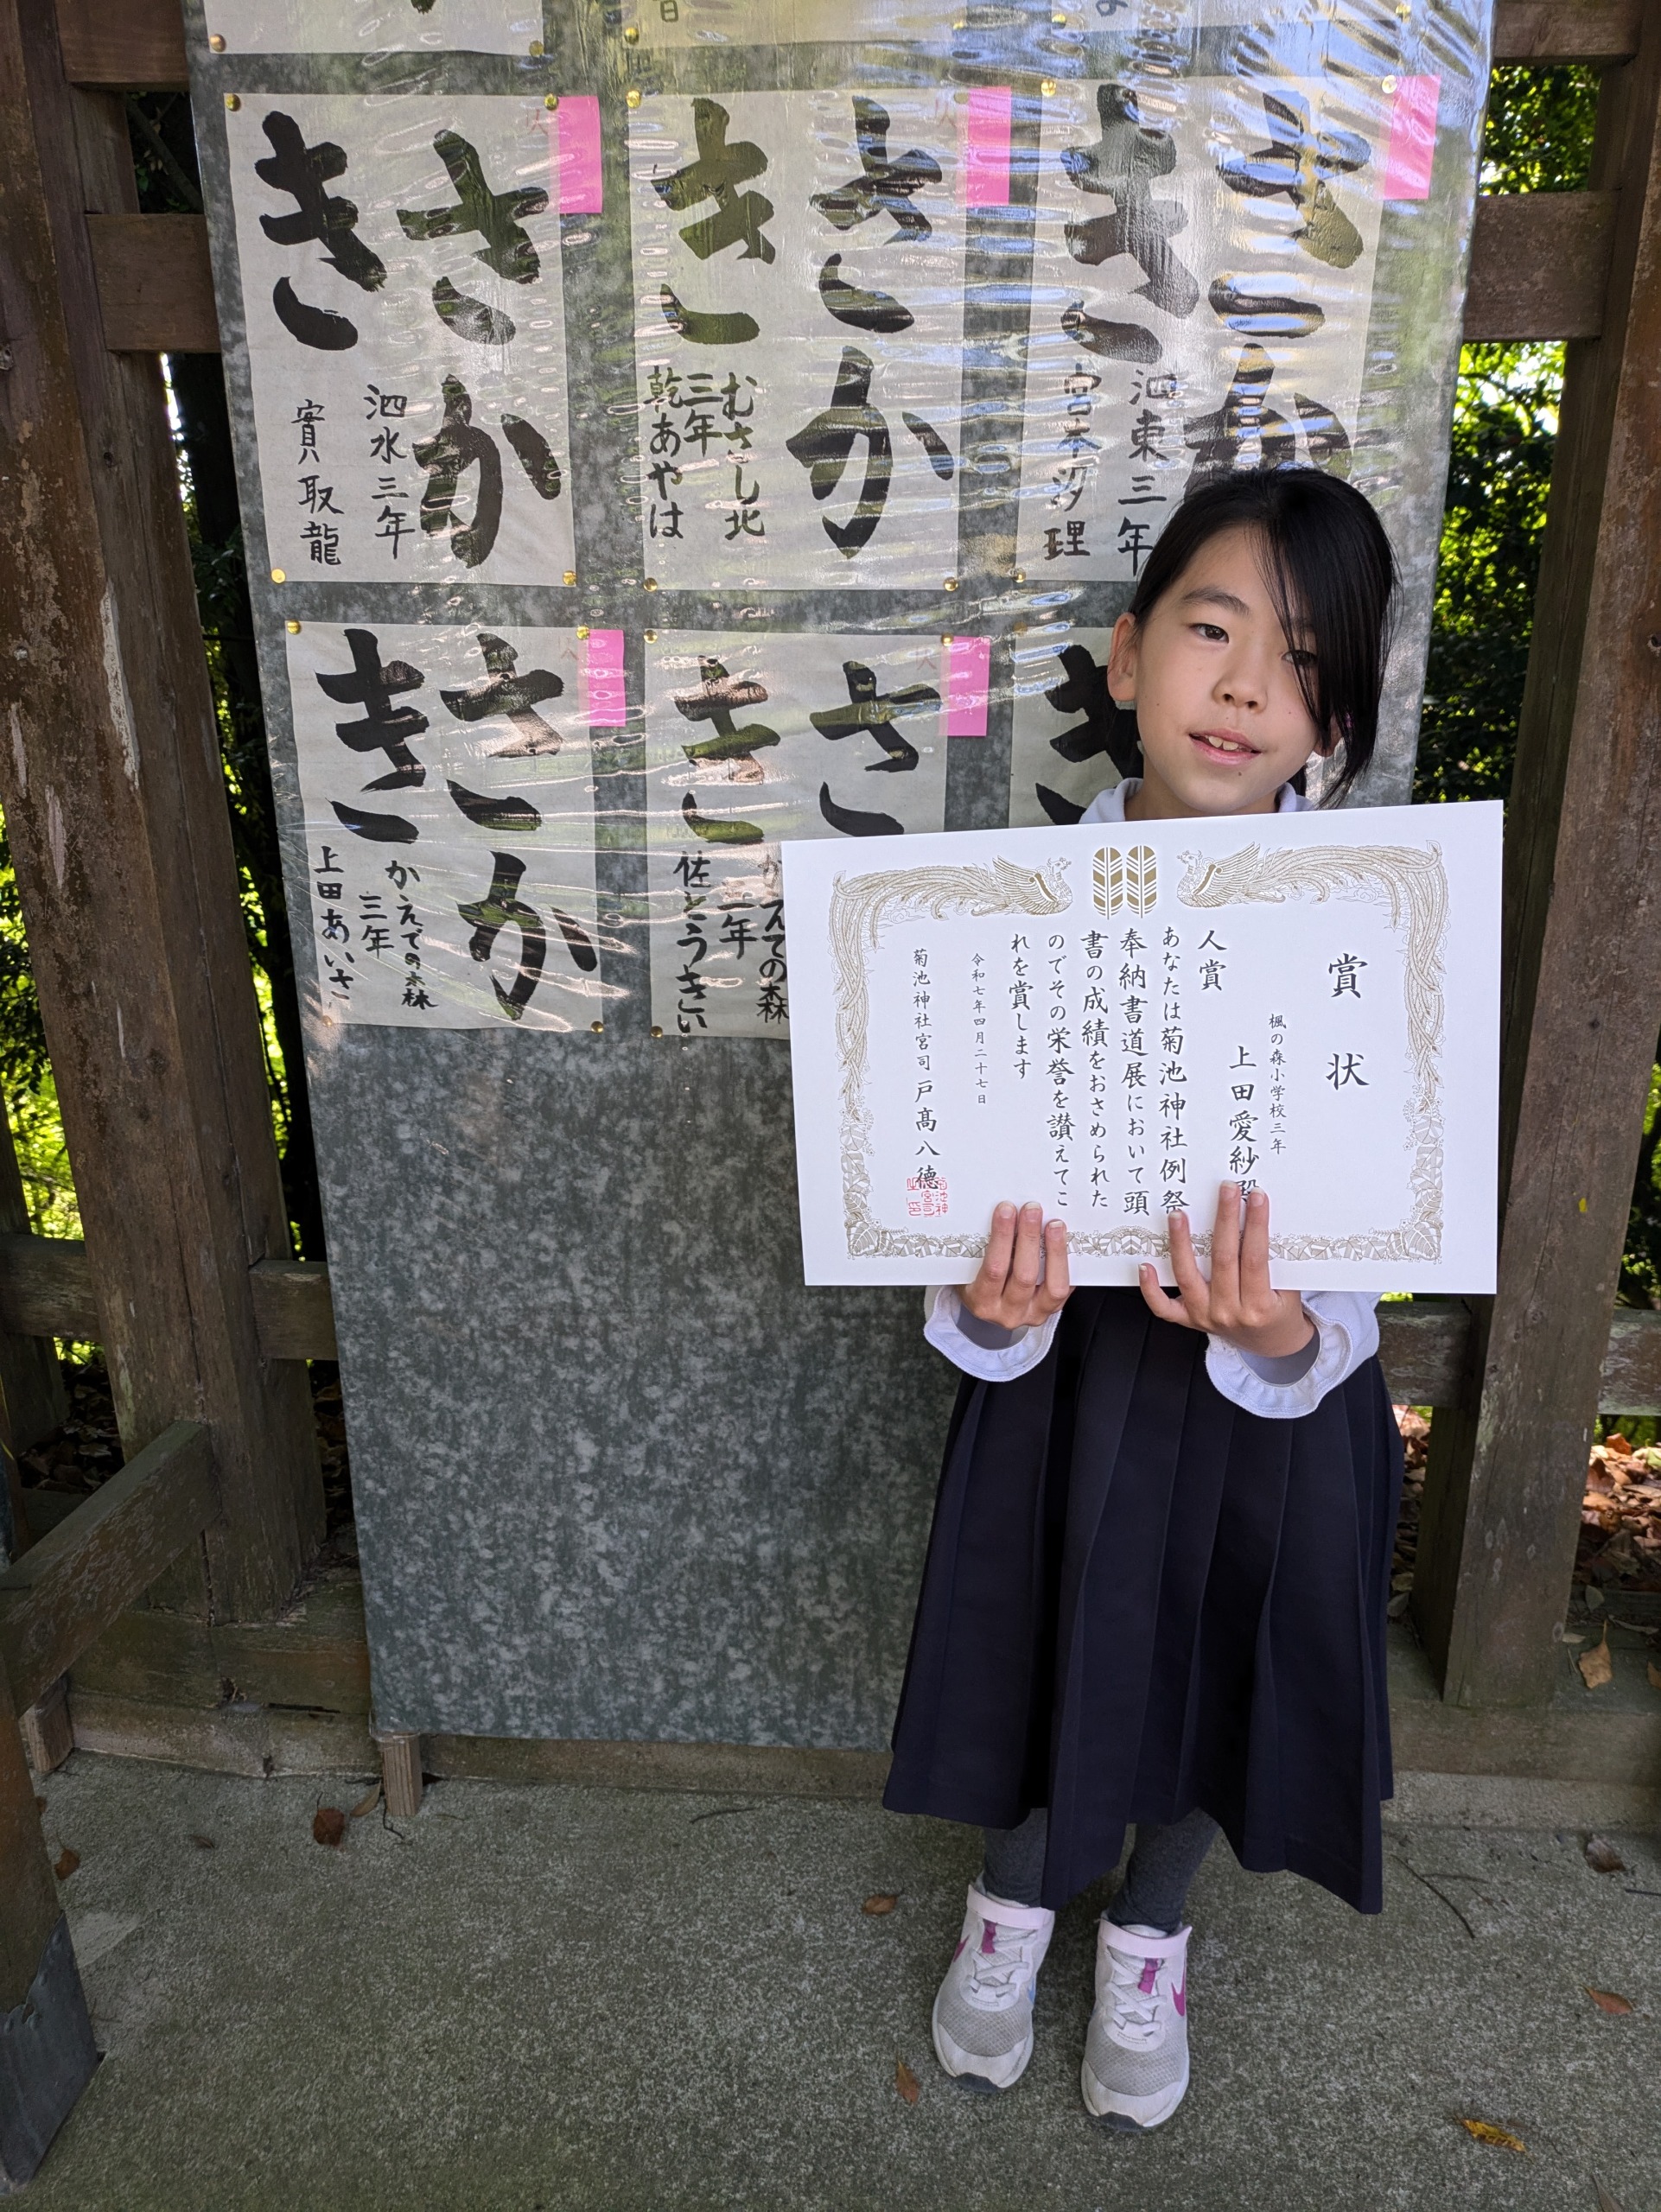 さか
きこ
泗水三年
實取龍
さか
きこ
むさし北
三年
乾あやは
さか
泗東三年
宮本汐理
さか
きこ
かえでの森
三年
上田あいさ
さ
き
えでの森
三年
佐とうきい
賞状
楓の森小学校三年
上田愛紗殿
人賞
あなたは菊池神社例祭
奉納書道展において頭
書の成績をおさめられた
のでその栄誉を讃えてこ
れを賞します
令和七年四月二十七日
菊池神社宮司 戸髙八徳